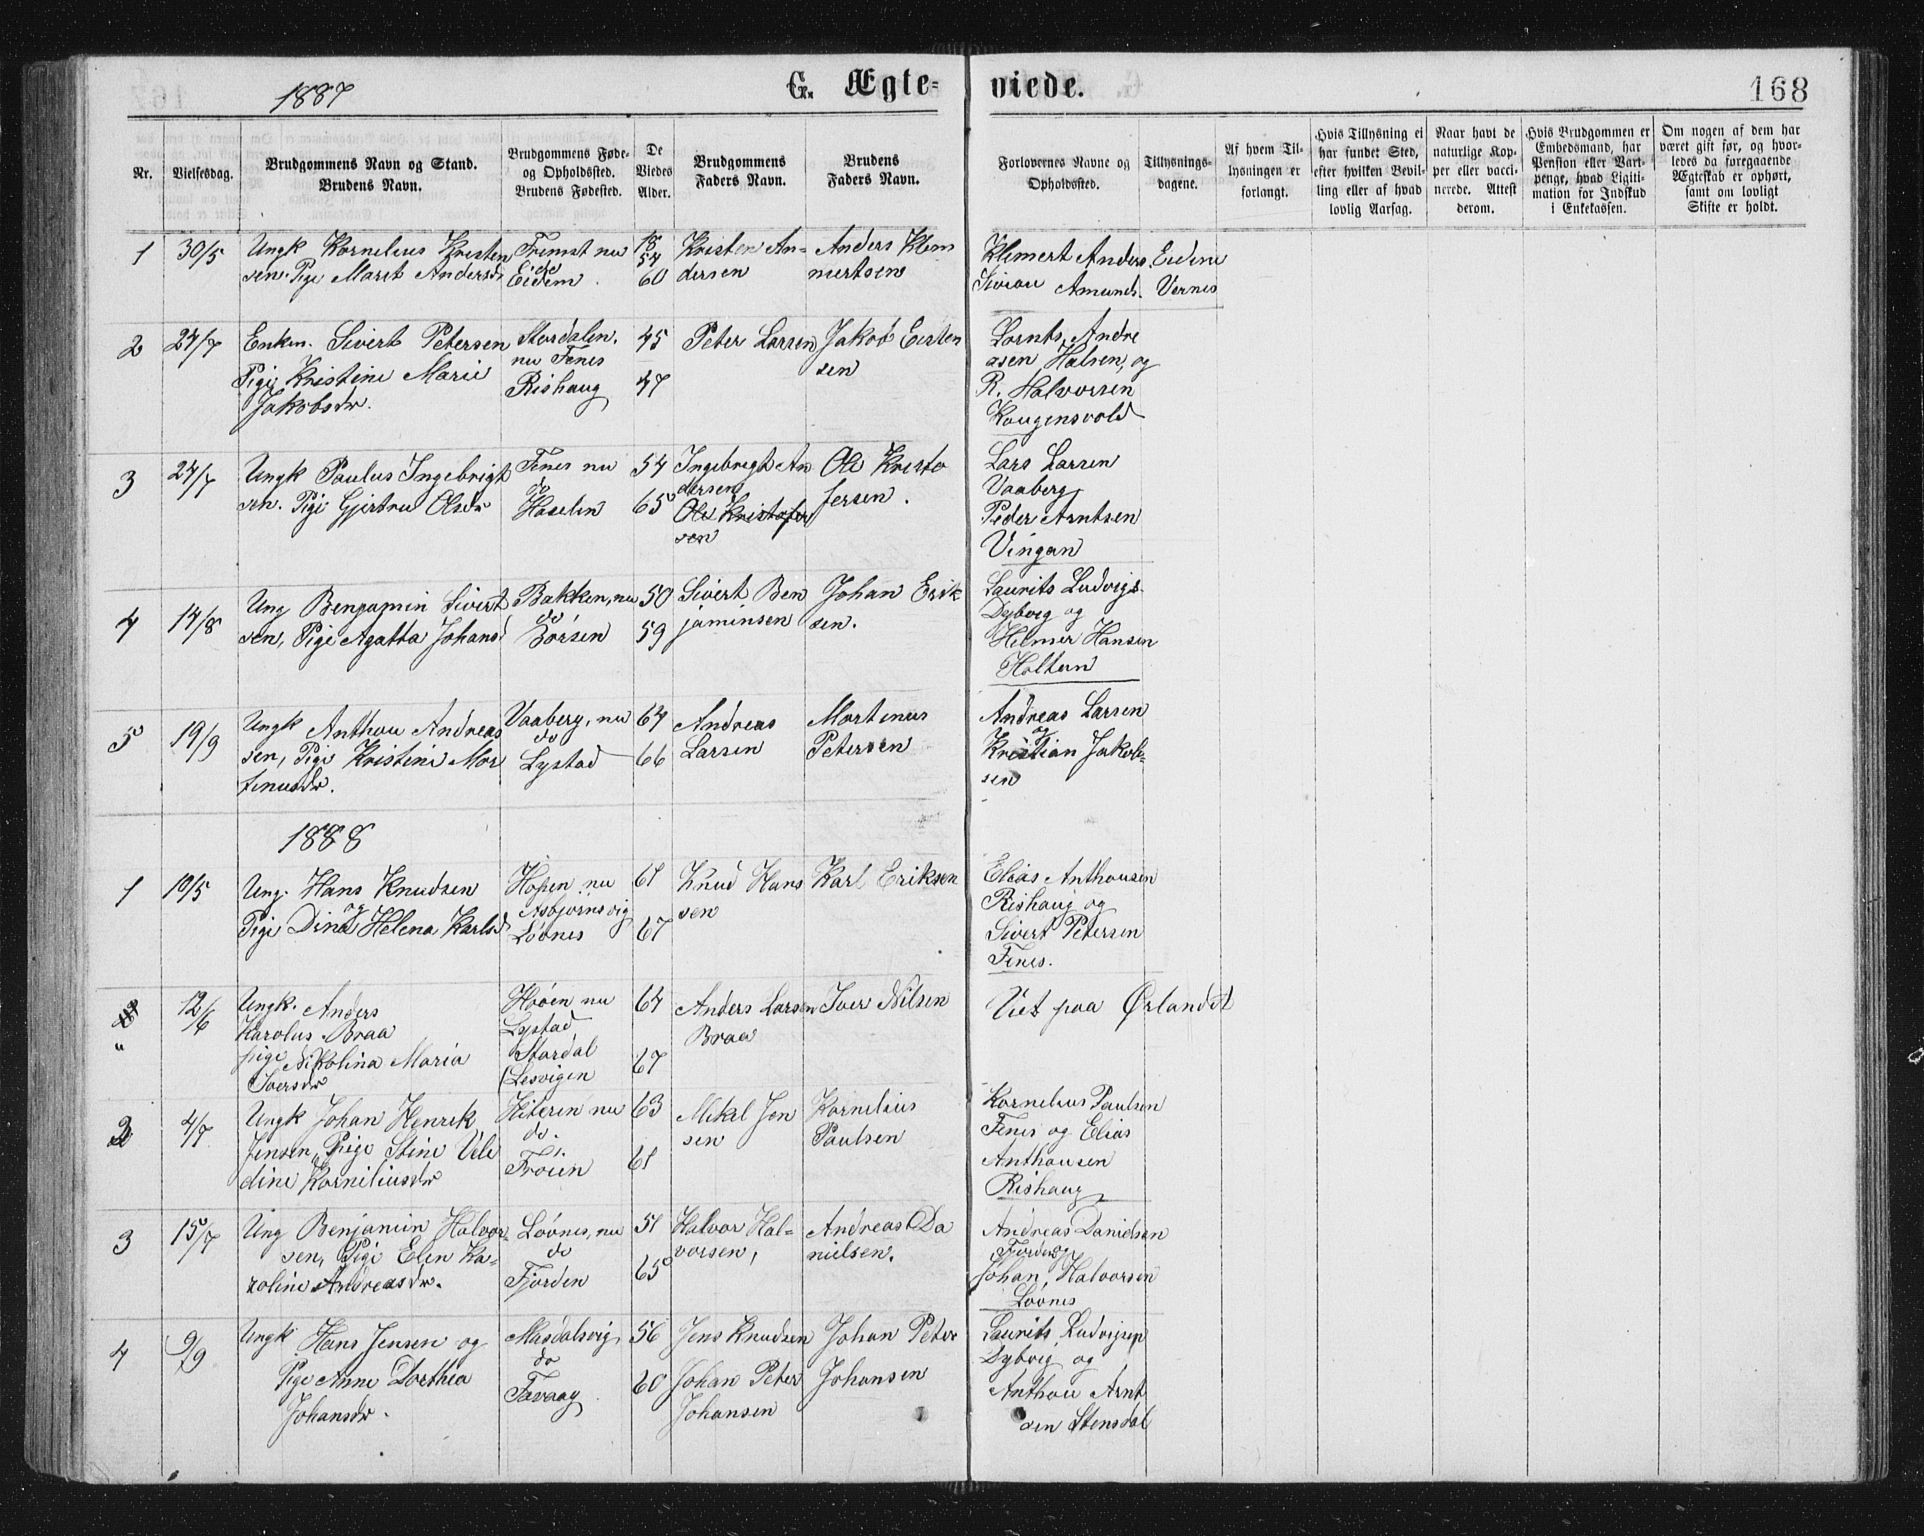 1887
G. Ægte-
viede.
168
Nr.
Vielsesdag.
Brudgommens Navn og Stand.
Brudens Navn.
Brudgommens Føde-
og Opholdssted.
Brudens Fødested.
De
Viedes
Alder.
Brudgommens
Faders Navn.
Brudens
Faders Navn.
Forlovernes Navne og
Opholdssted.
Tillysnings-
dagene.
Af hvem Til-
lysningen er
forlangt.
Hvis Tillysning ei
har fundet Sted,
efter hvilken Bevil-
ling eller af hvad
lovlig Aarsag.
Naar havt de
naturlige Kop-
per eller vacci-
nerede. Attest
derom.
Hvis Brudgommen er
Embedsmand, har
Pension eller Vart-
penge, hvad Ligiti-
mation for Indskud
i Enkekassen.
Om nogen af dem har
været gift før, og hvor-
ledes da foregaaende
Ægteskab er ophørt,
samt om lovligt
Skifte er holdt.
1
30/5
Ungk Kornelius Kristen
sen. Pige Marit Andersdr
Fremst nu
do
Eidem
18
54
60
Kristen An-
dersen
Anders Klem
mertsen
Klemert Anders. Eidem
Amunds. Vernes
2
24/7
Enkm. Sivert Petersen
Pige Kristine Marie
Jakobsdr.
Stordalen,
nu Fenes
Rishaug
45
47
Peter Larsen
Jakob Eisten
sen
Lornts Andre
asen Halsen, og
R. Halvorsen
Kongensvold
3
24/7
Ungk Paulus Ingebrigt
sen. Pige Gjertru Olsdr
Fenes nu
do
Haselen
54
65
Ingebregt An
dersen
Ole Kristofer
sen
Ole Kristo
fersen.
Lars Larsen
Vaaberg
Peder Arntsen
Vingan
4
14/8
Ung Benjamin Sivert
sen, Pige Agatta Johansd
Bakken, nu
do
Børsen
50
59
Sivert Ben
jaminsen
Johan Erik
sen.
Laurits Ludvigs
Dybvig og
Hilmer Hansen
Holten
5
19/9
Ungk Anthon Andreas
sen, Pige Kristine Mor
tinusdr.
Vaaberg, nu
do
Lystad
64
66
Andreas
Larsen
Mortinus
Petersen
Andreas Larsen
og
Kristian Jakob-
sen
1888
1
10/5
Ung. Hans Knudsen
og
Pige Dina Helena Karlsd
Hopen nu
Asbjørnsvig
Løvnes
61
67
Knud Hans
sen
Karl Eriksen
Elias Anthonsen
Rishaug og
Sivert Petersen
Fenes.
"
12/6
Ungk. Anders
Karolus Braa
pige Nikolina Maria
Iversdr
Hoøen nu
Lystad
Stordal
(Lesvigen
64
67
Anders Larsen
Braa
Iver Nilsen
Viet paa Ørlandet
2
4/7
Ungk Johan Henrik
Jensen, Pige Stine Vele
dine Korneliusdr
Hiteren nu
do.
Frøien
63
61
Mikal Jen
sen
Kornelius
Paulsen
Kornelius Paulsen
Fenes og Elias
Anthonsen
Rishaug
3
15/7
Ung Benjamin Halvor-
sen, Pige Elen Ka-
roline Andreasdr.
Løvnes, nu
do
Fjorden
51
65
Halvor Hal-
vorsen,
Andreas Da
nielsen.
Andreas Danielsen
Fjorden og
Johan Halvorsen
Løvnes
4
9/9
Ungk Hans Jensen og
Pige Anne Dorthea
Johansdr.
Masdalsvig
do
Tavaag
56
60
Jens Knudsen
Johan Peter
Johansen
Johan Peter
Johansen
Laurits Ludvigsen
Dybvig og
Anthon Arnt
sen Stensdal